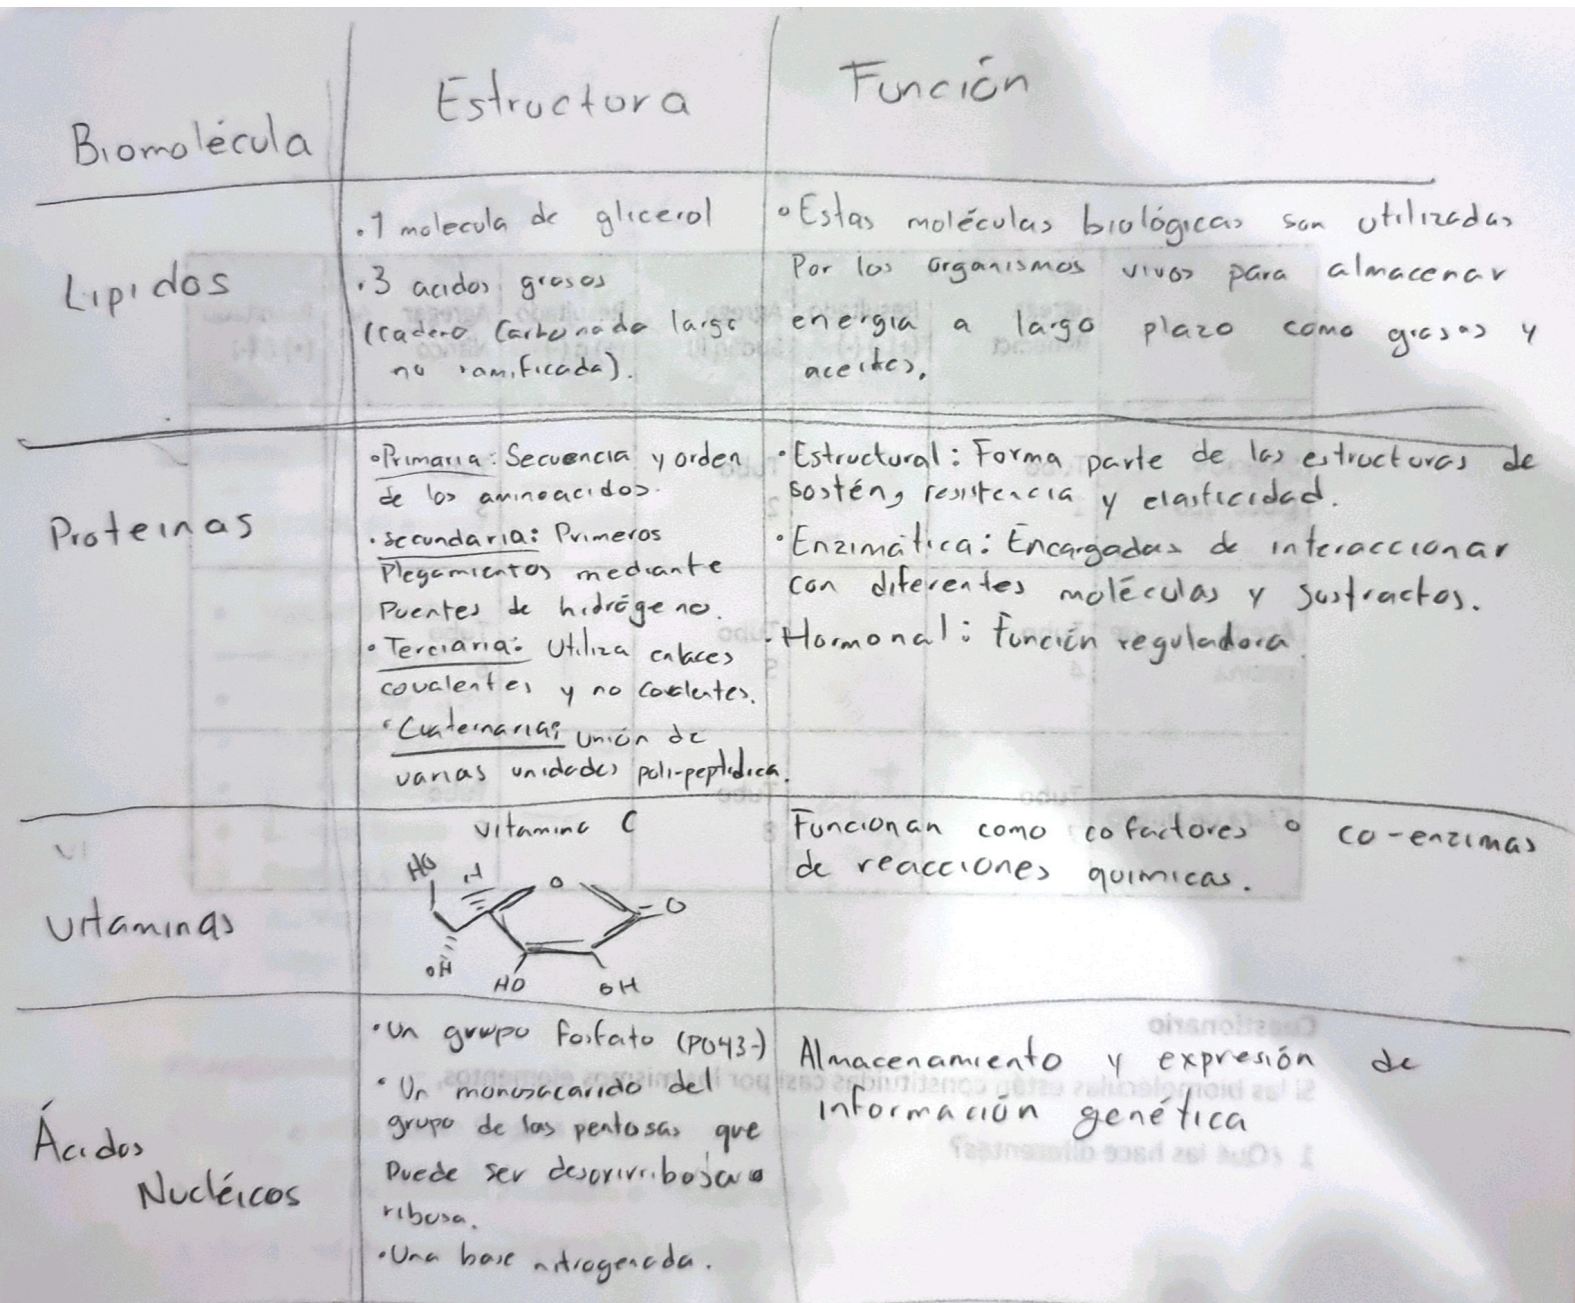 Biomolécula
Estructura
Función
Lipidos
· 1 molecula de glicerol
· 3 acidos grasos
(cadena Carbonada larga
no ramificada).
· Estas moléculas biológicas son utilizadas
Por los organismos vivos para almacenar
energia a largo plazo como grasas y
aceites.
Proteinas
· Primaria: Secuencia y orden
de los aminoacidos.
· secundaria: Primeros
Plegamientos mediante
Puentes de hidrógeno.
· Terciaria: Utiliza enlaces
covalentes y no covalentes.
· Cuaternaria: Unión de
varias unidades poli-peptidica.
· Estructural: Forma parte de las estructuras de
sostén, resistencia y elasticidad.
· Enzimática: Encargadas de interaccionar
con diferentes moléculas y sustractos.
· Hormonal: función reguladora
vi
vitaminas
vitamina C
HO
H
O
O
OH
HO
OH
Funcionan como cofactores o co-enzimas
de reacciones quimicas.
Ácidos
Nucléicos
· Un grupo fosfato (PO43-)
· Un monosacarido del
grupo de las pentosas que
Puede ser
ribosa.
· Una base nitrogenada.
Almacenamiento y expresión de
información genética
Cuestionario
Si las biomoléculas están constituidas casi por los mismos elementos,
1 ¿Qué las hace diferentes?